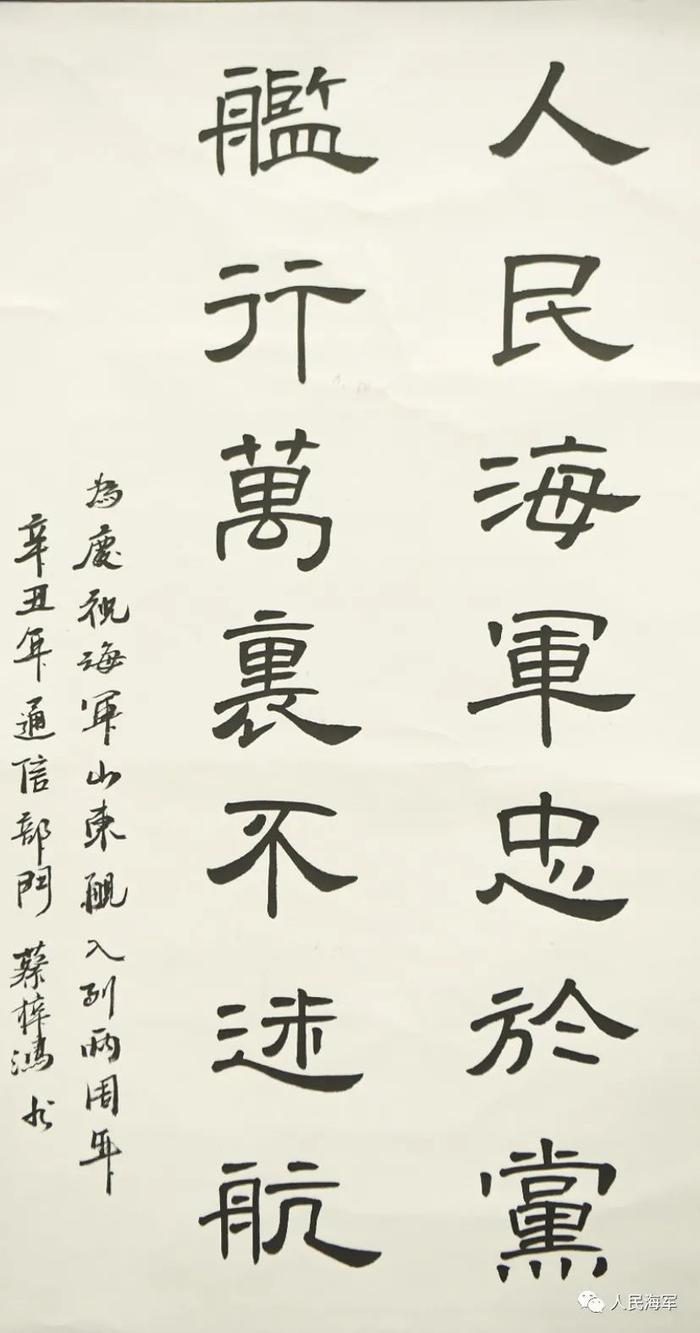 人民海軍忠於黨
艦行萬裏不迷航
為慶祝海軍山東艦入列兩周年
辛丑年通信部門 蔡梓鴻書
人民海军